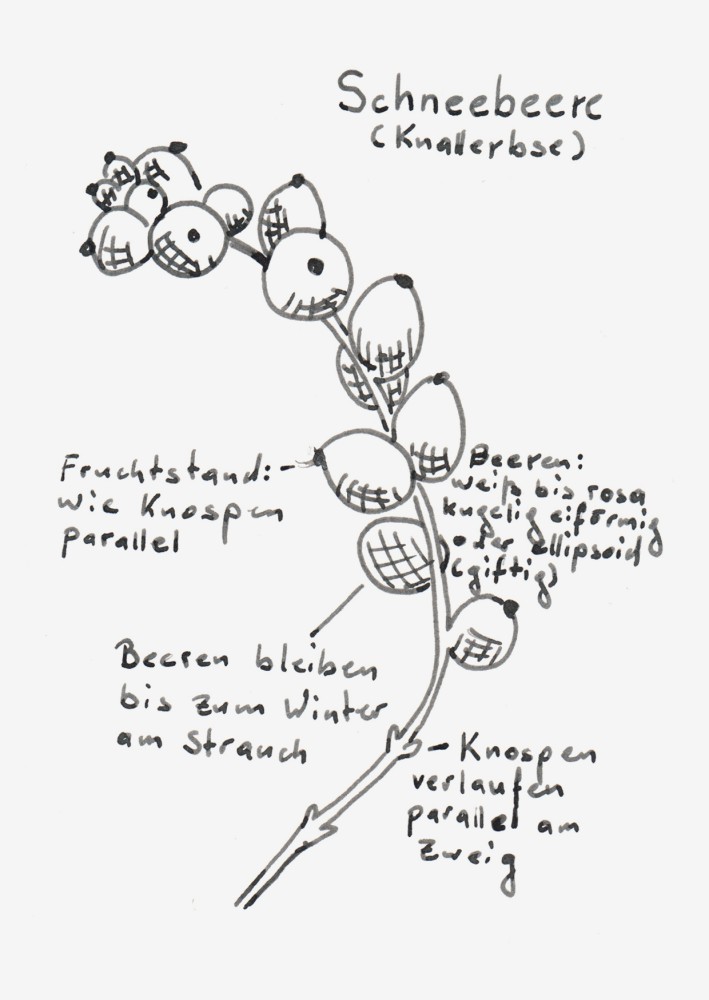 Schneebeere
(Knallerbse)
Fruchtstand:
wie Knospen
parallel
Beeren:
weiß bis rosa
kugelig eiförmig
oder ellipsoid
(giftig)
Beeren bleiben
bis zum Winter
am Strauch
Knospen
verlaufen
parallel am
Zweig